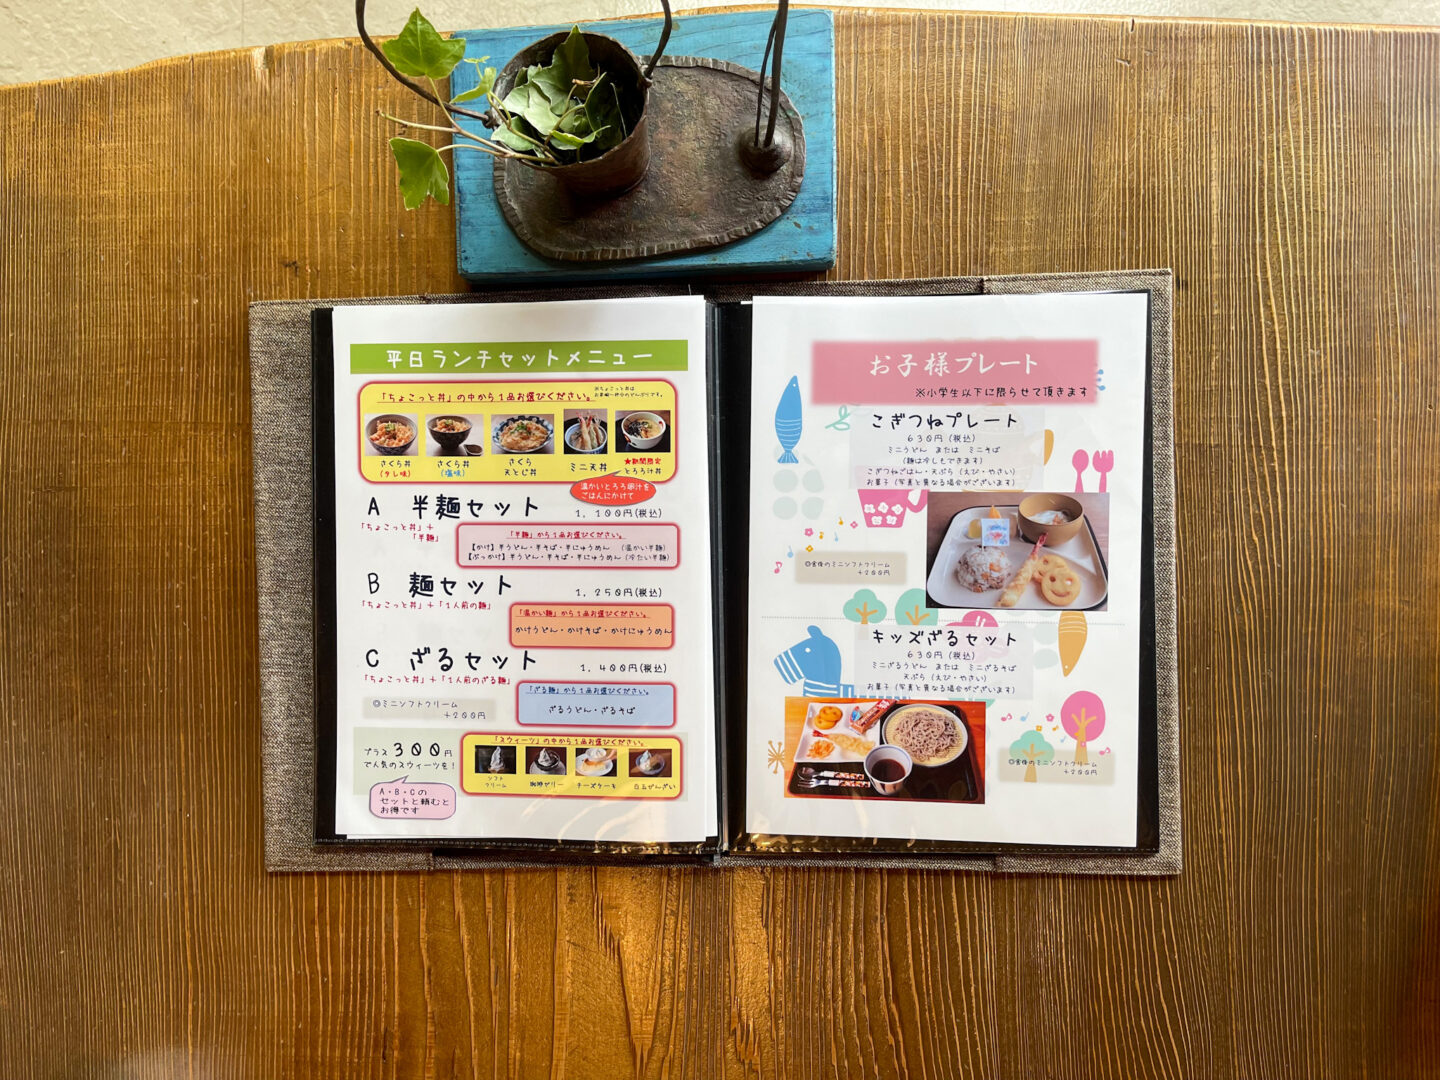 平日ランチセットメニュー
「ちょこっと丼」の中から1品お選びください。
※ちょこっと丼は
お茶碗一杯分のどんぶりです。
さくら丼
(タレ味)
さくら丼
(塩味)
さくら
天とじ丼
ミニ天丼
★期間限定
とろろ汁丼
温かいとろろ卵汁を
ごはんにかけて
A 半麺セット
1,100円(税込)
「ちょこっと丼」+
「半麺」
「半麺」から1品お選びください。
【かけ】半うどん・半そば・半にゅうめん (温かい半麺)
【ぶっかけ】半うどん・半そば・半にゅうめん (冷たい半麺)
B 麺セット
1,250円(税込)
「ちょこっと丼」+「1人前の麺」
「温かい麺」から1品お選びください。
かけうどん・かけそば・かけにゅうめん
C ざるセット
1,400円(税込)
「ちょこっと丼」+「1人前のざる麺」
「ざる麺」から1品お選びください。
ざるうどん・ざるそば
◎ミニソフトクリーム
+200円
プラス300円
で人気のスウィーツを!
「スウィーツ」の中から1品お選びください。
ソフト
クリーム
珈琲ゼリー
チーズケーキ
白玉ぜんざい
A・B・Cの
セットと頼むと
お得です
お子様プレート
※小学生以下に限らせて頂きます
こぎつねプレート
630円(税込)
ミニうどん または ミニそば
(麺は冷しもできます)
こぎつねごはん・天ぷら(えび・やさい)
お菓子(写真と異なる場合がございます)
◎食後のミニソフトクリーム
+200円
キッズざるセット
630円(税込)
ミニざるうどん または ミニざるそば
天ぷら(えび・やさい)
お菓子(写真と異なる場合がございます)
◎食後のミニソフトクリーム
+200円